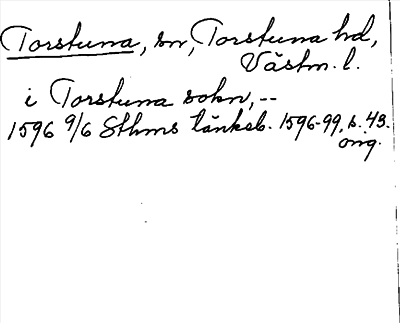 Torstuna, sn, Torstuna hd,
Västm. l.
i Torstuna sokn, --
1596 9/6 Sthms tänkeb. 1596-99, s. 43.
orig.